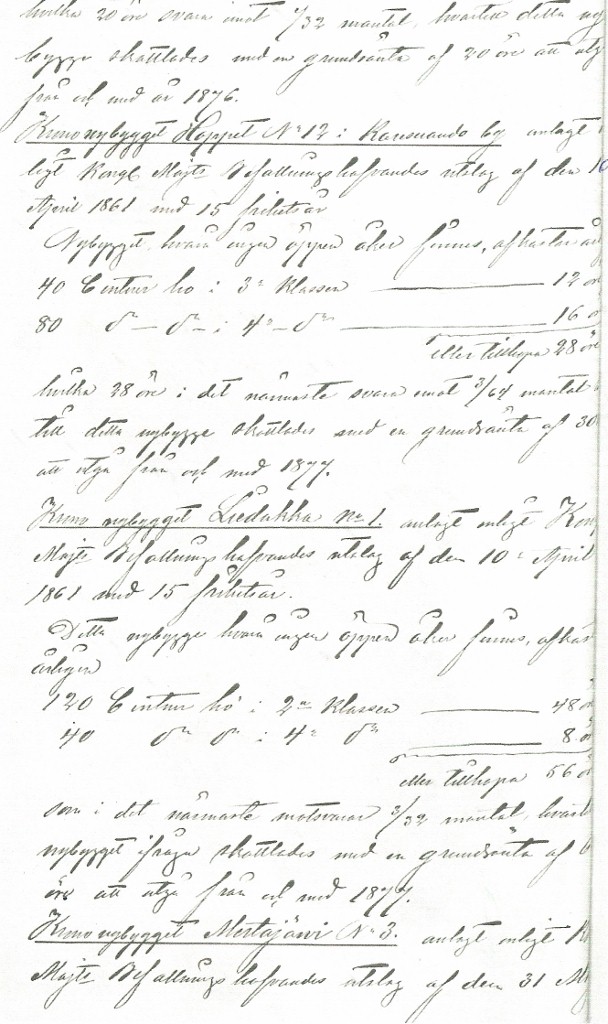 hvilka 20 öre svara emot 1/32 mantal, hvartill detta ny
bygge skattlades med en grundränta af 20 öre att utgå
från och med år 1876.
Krononybygget Hoppet No 12 i Karesuando by anlagt
ligt Kongl Majts Befallningshafvandes utslag af den 10
April 1861 med 15 frihetsår
Nybygget, hvara ingen öppen åker finnes, afkastar
40 Centner hö i 3e Klassen 12 ör
80 do do i 4e do 16 ö
eller tillhopa 28 öre
hvilka 28 öre i det närmaste svara emot 3/64 mantal
till detta nybygge skattlades med en grundränta af 30
att utgå från och med 1877.
Krono nybygget Liedakka No 1. anlagt enligt Kon
Majts Befallningshafvandes utslag af den 10e April
1861 med 15 frihetsår.
Detta nybygge hvara ingen öppen åker finnes, afkas
årligen
120 Centner hö i 2a Klassen 48 ör
40 do do i 4e do 8 ör
eller tillhopa 56 ö
som i det närmaste motsvarar 3/32 mantal, hvart
nybygget ifråga skattlades med en grundränta af 6
öre att utgå från och med 1877.
Krono nybygget Mertajärvi No 3. anlagt enligt K
Majts Befallningshafvandes utslag af den 31 M